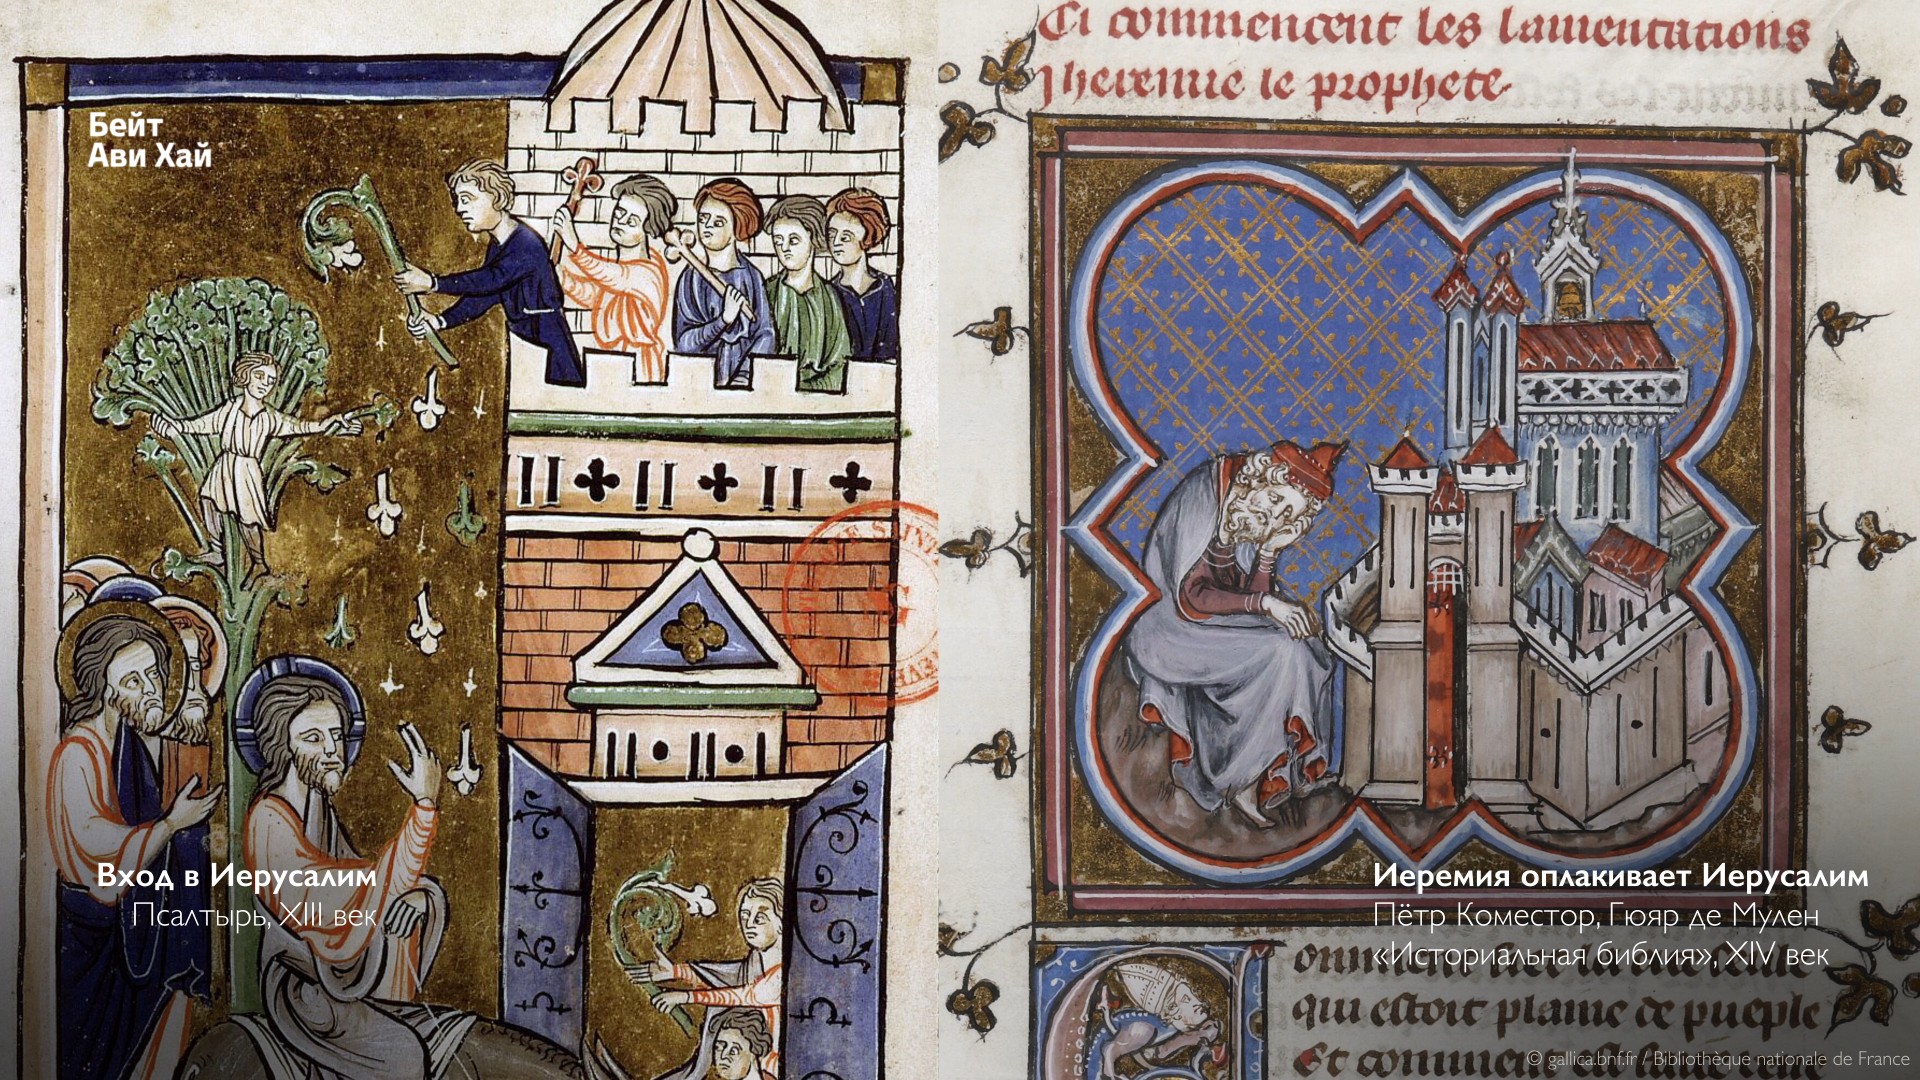 Ci commencent les lamentations
Jheremie le prophete
Бейт
Ави Хай
Вход в Иерусалим
Псалтырь, XIII век
Иеремия оплакивает Иерусалим
Пётр Коместор, Гюяр де Мулен
«Историальная библия», XIV век
qui estoit plaine de pueple
© gallica.bnf.fr / Bibliothèque nationale de France